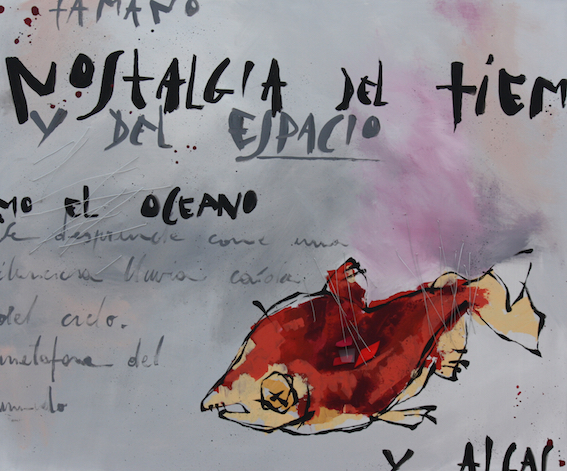 TAMAÑO
NOSTALGIA DEL tiEM
Y DEL ESPACIO
MO EL OCEANO
se desprende como una
ilenciosa lluvia caída
del cielo.
metafora del
mundo
Y ALGAS